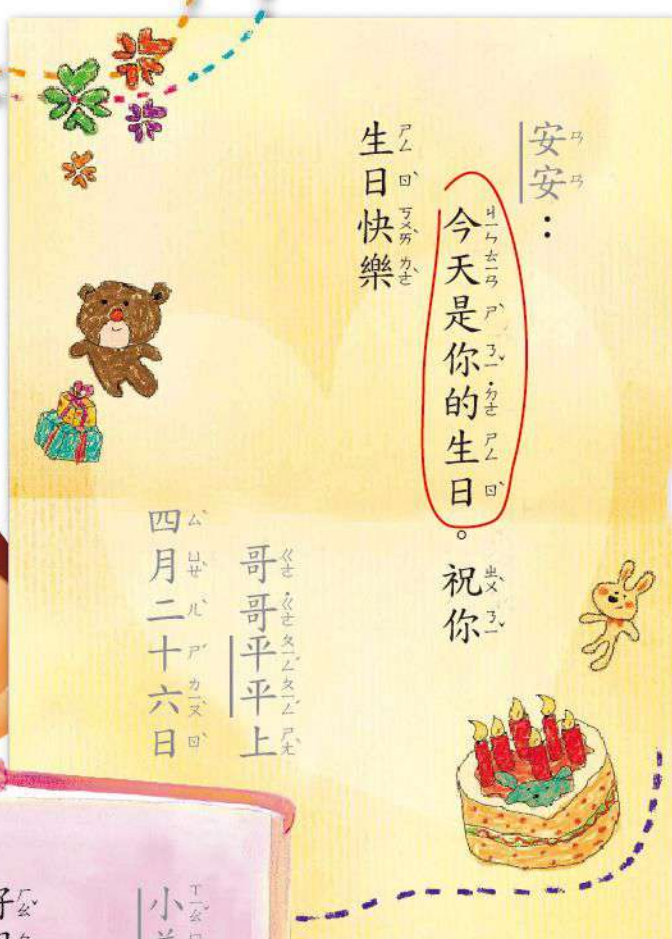 安安：
今天是你的生日。祝你
生日快樂
哥哥平平上
四月二十六日
小